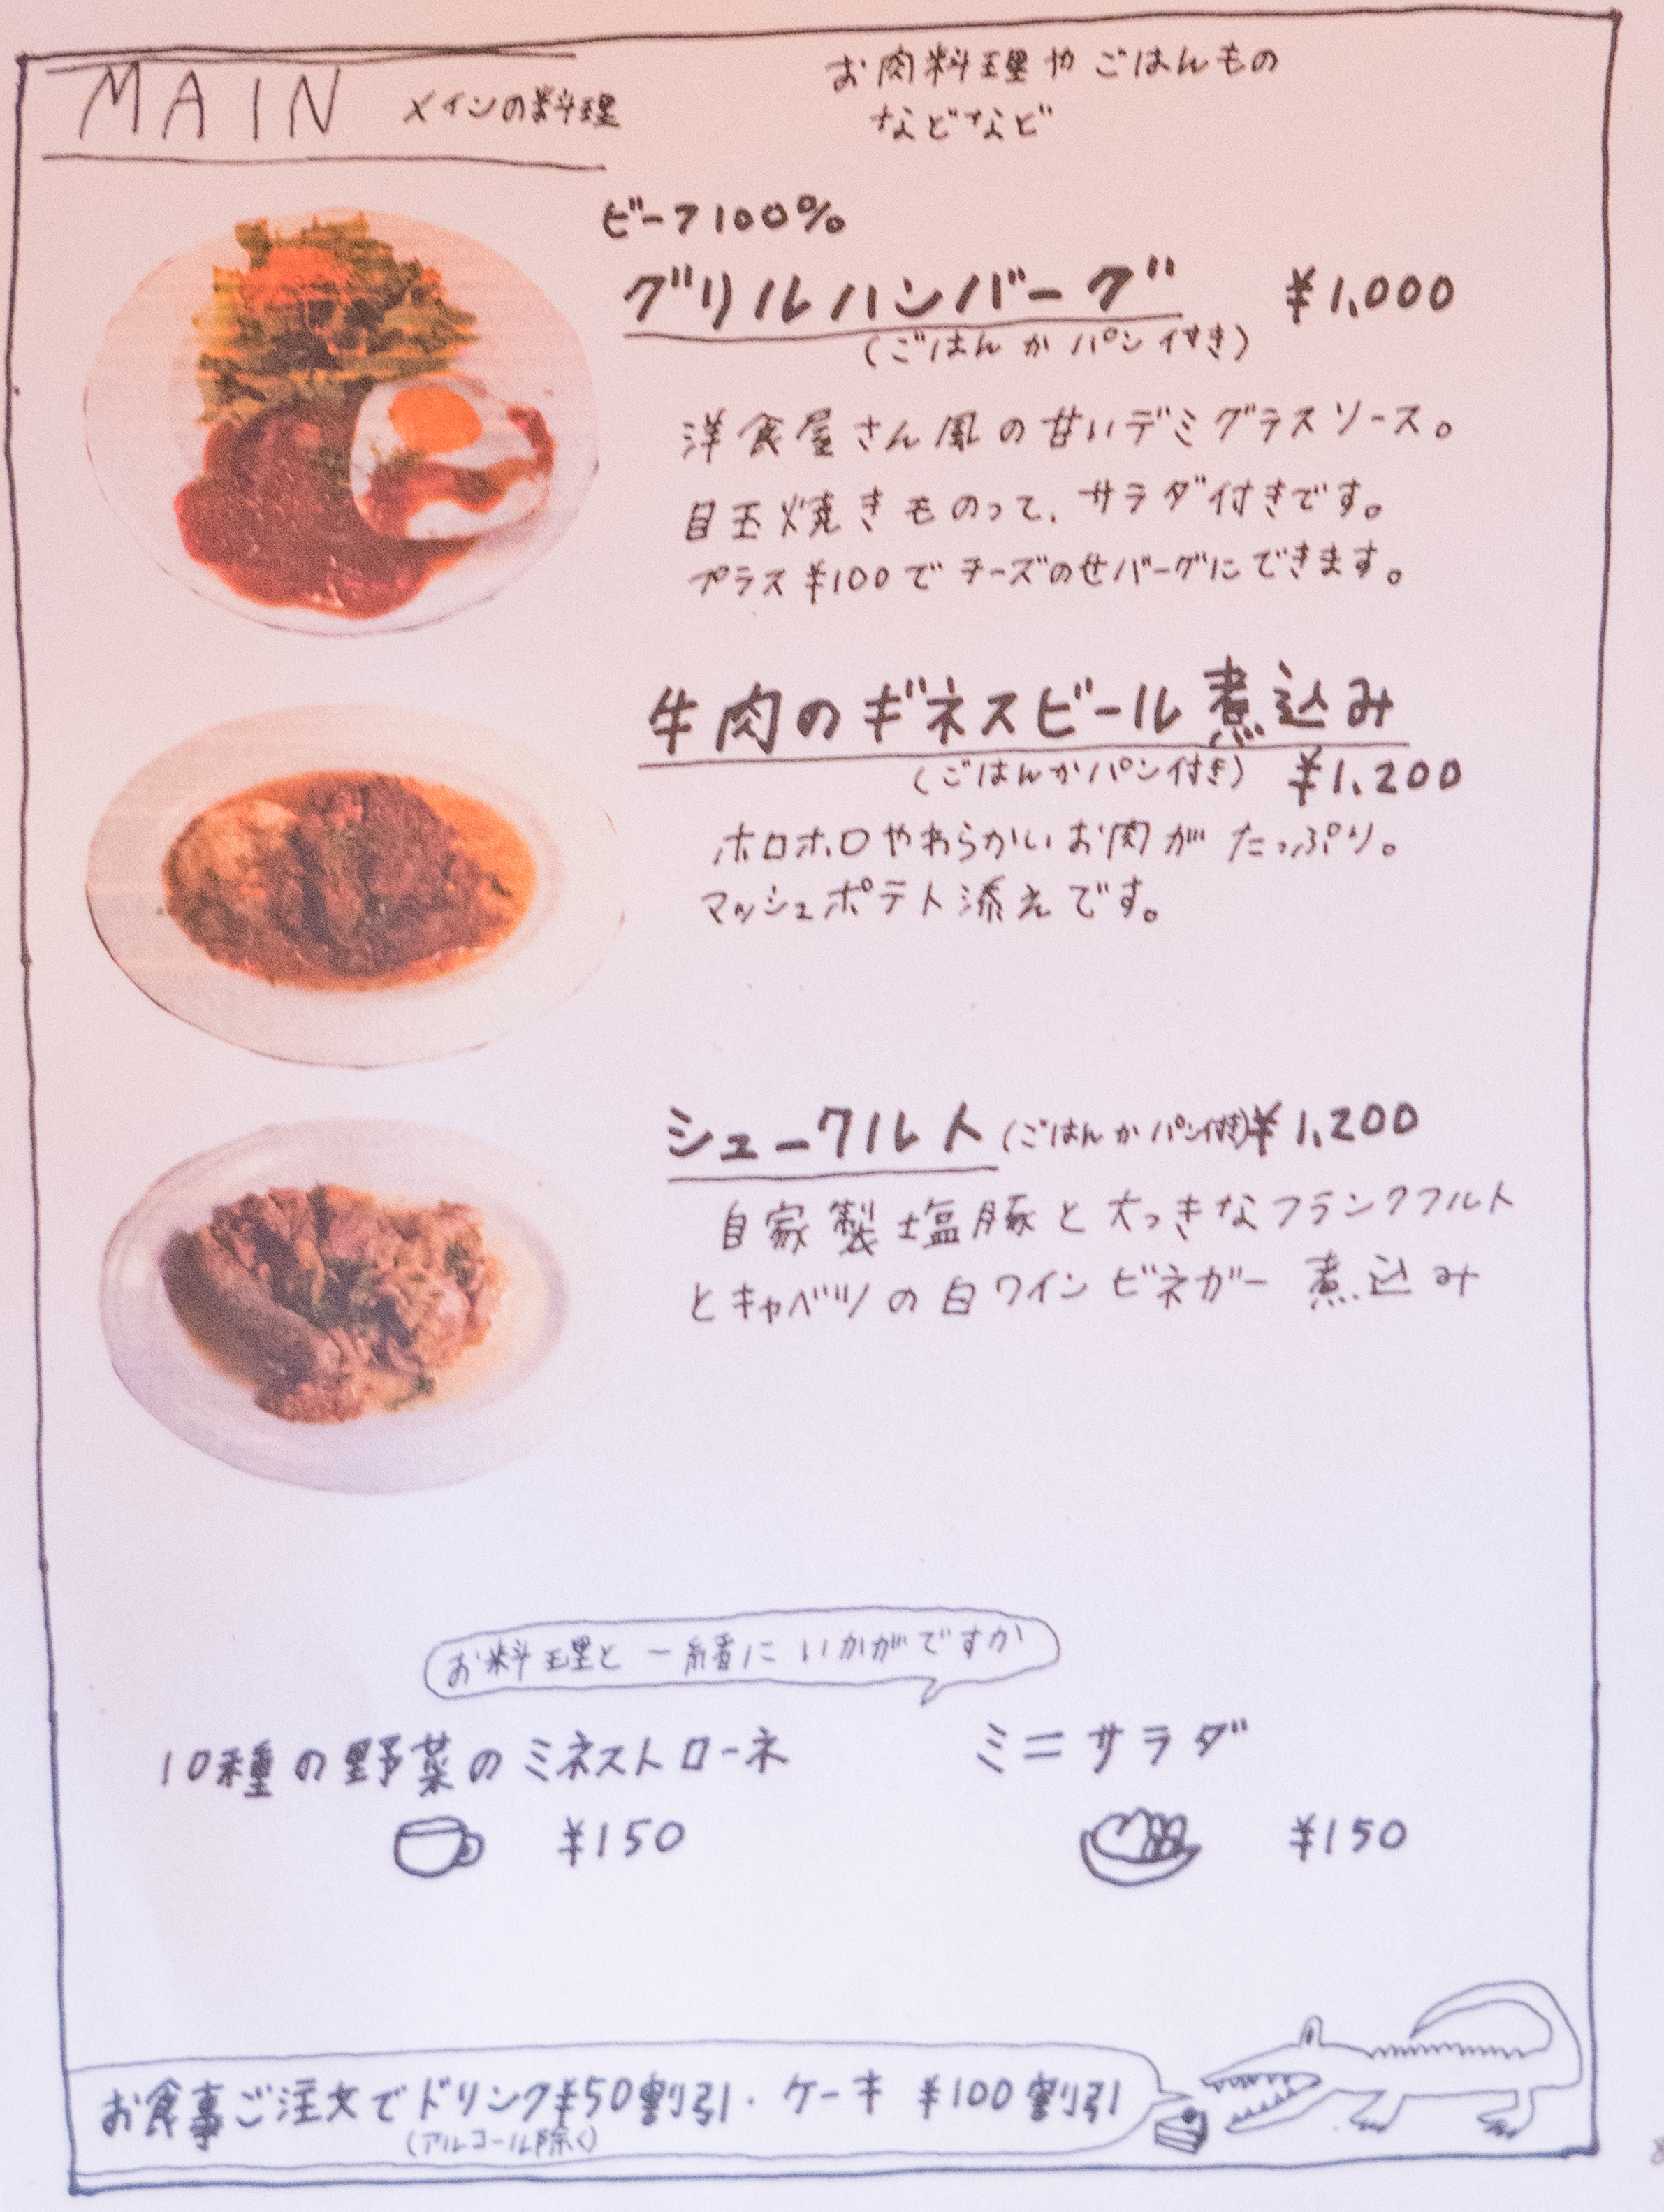 MAIN メインの料理
お肉料理やごはんもの
などなど
ビーフ100%
グリルハンバーグ ¥1,000
(ごはんかパン付き)
洋食屋さん風の甘いデミグラスソース。
目玉焼きものって、サラダ付きです。
プラス¥100でチーズのせバーグにできます。
牛肉のギネスビール煮込み
(ごはんかパン付き) ¥1,200
ホロホロやわらかいお肉がたっぷり。
マッシュポテト添えです。
シュークルート (ごはんかパン付き) ¥1,200
自家製塩豚と大っきなフランクフルト
とキャベツの白ワインビネガー煮込み
お料理と一緒にいかがですか
10種の野菜のミネストローネ ミニサラダ
¥150 ¥150
お食事ご注文でドリンク¥50割引・ケーキ ¥100割引
(アルコール除く)